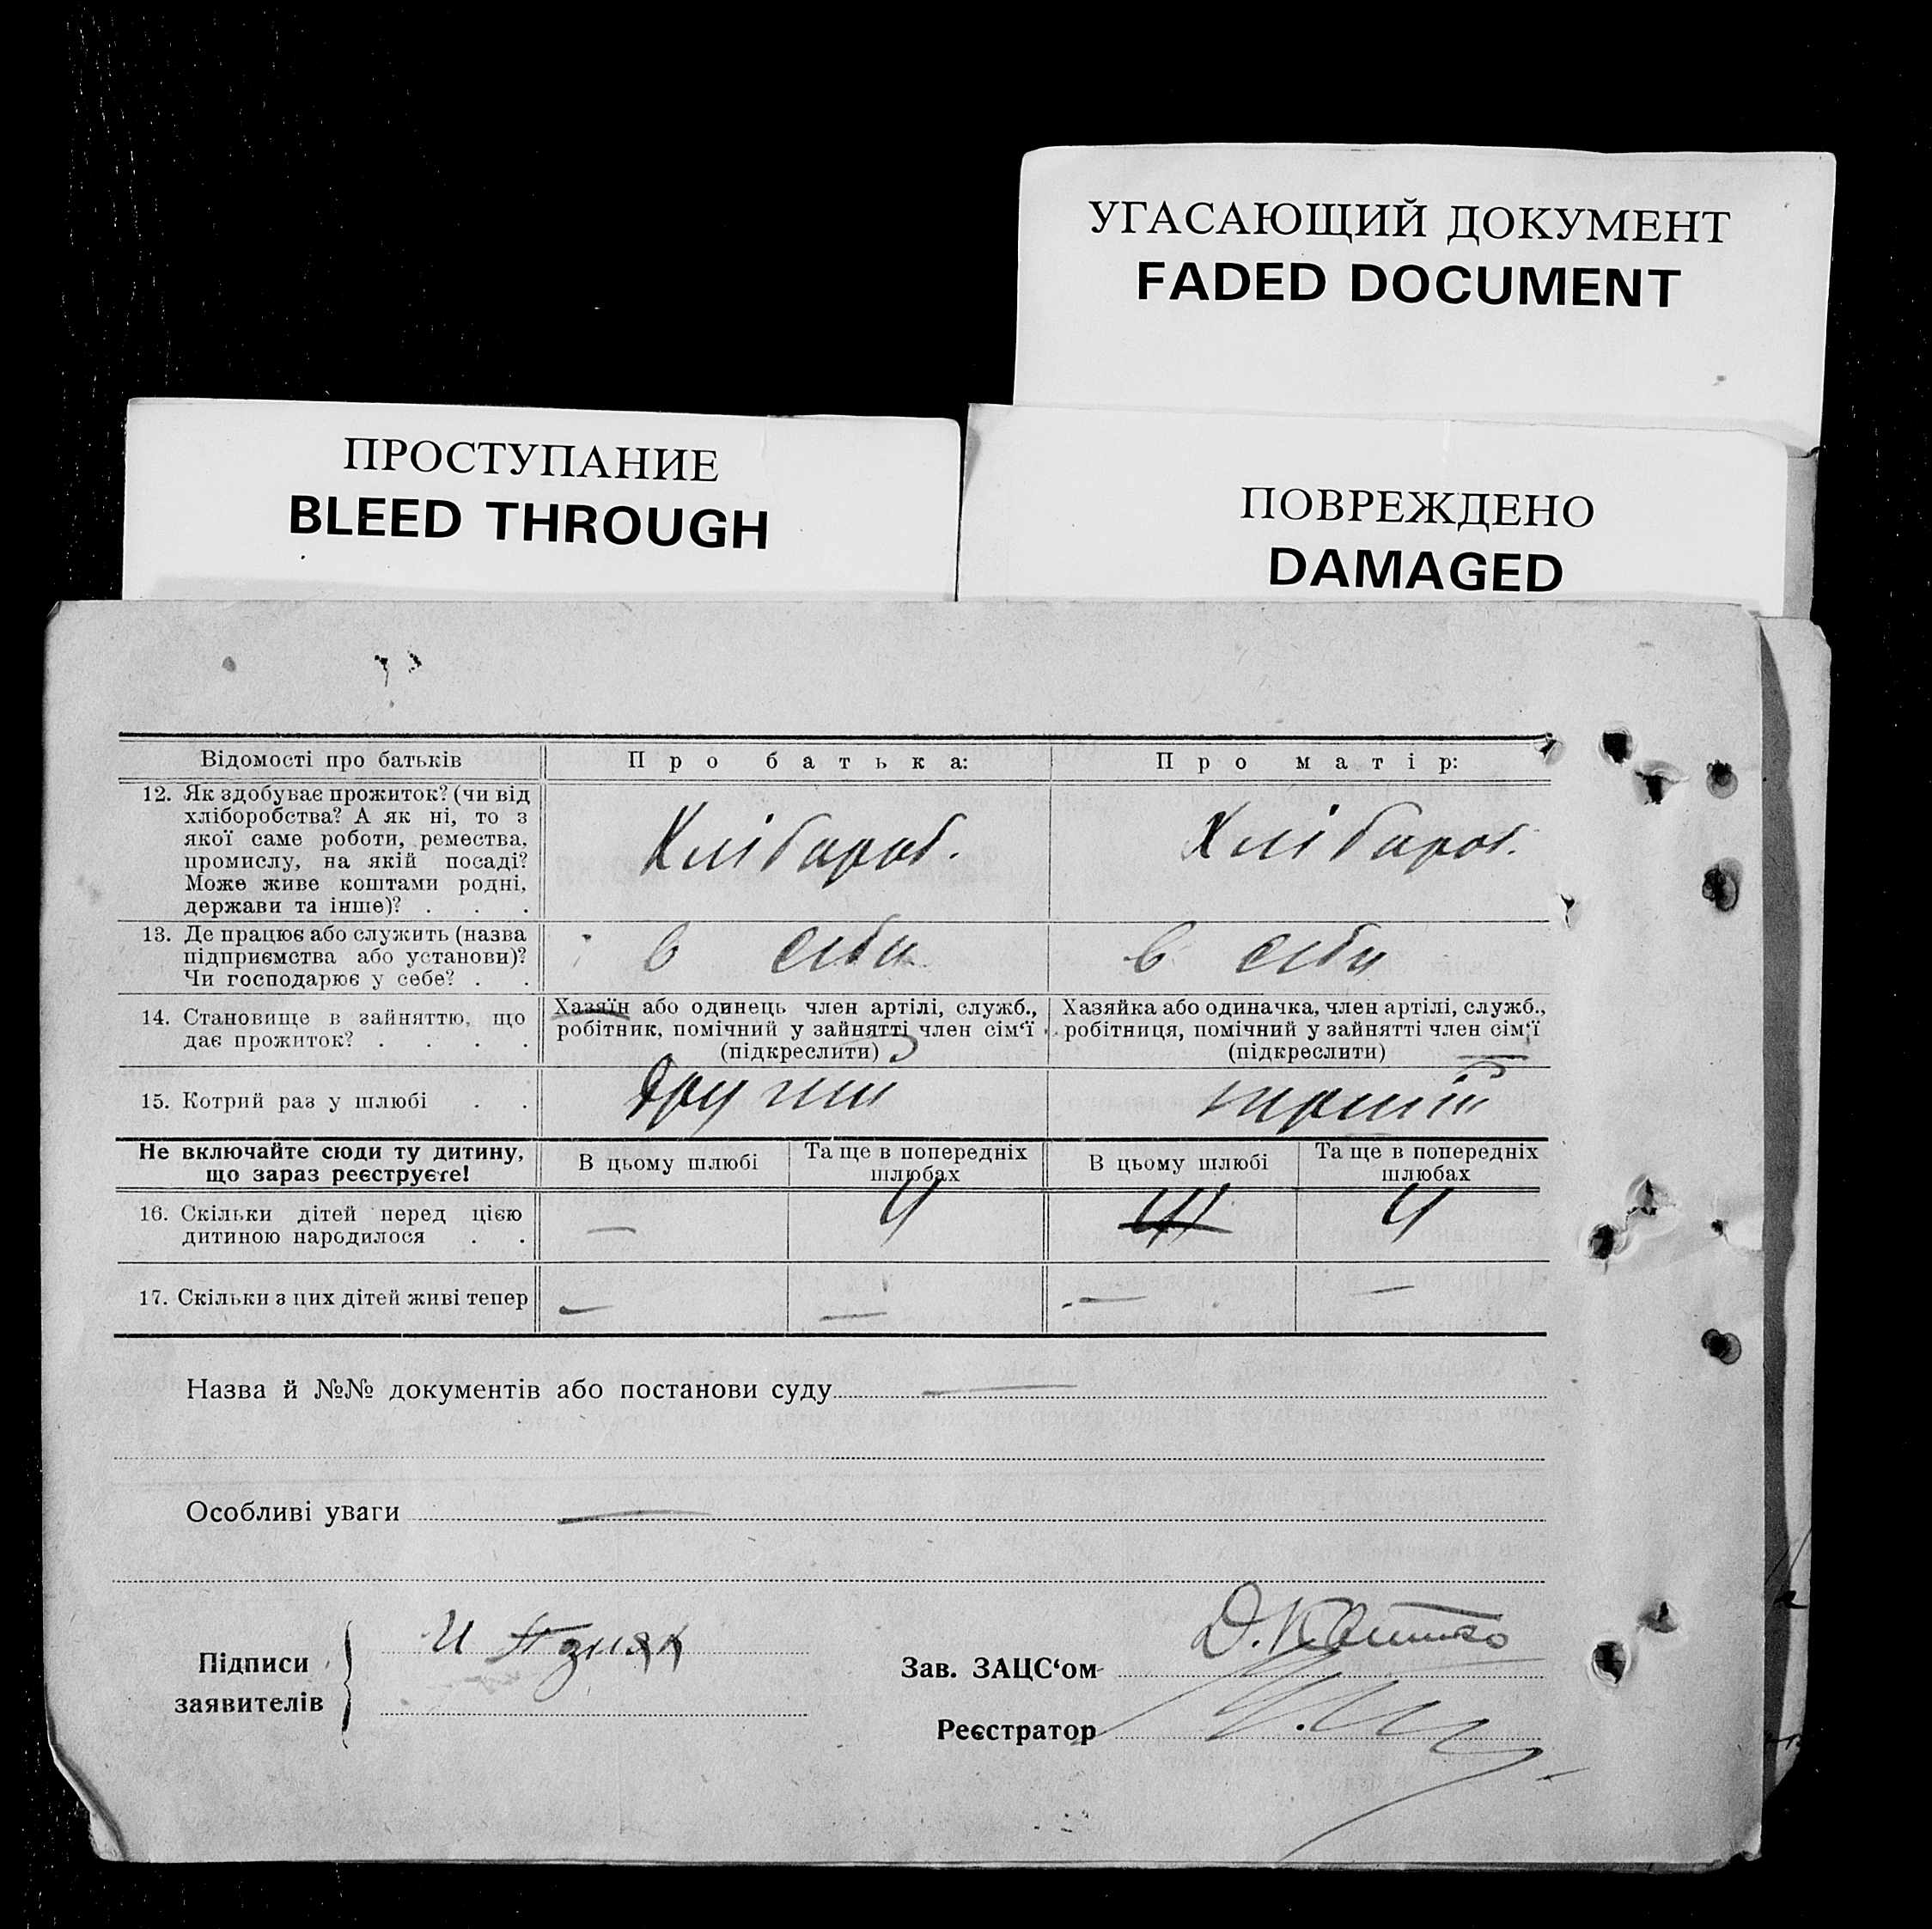 УГАСАЮЩИЙ ДОКУМЕНТ
FADED DOCUMENT
ПРОСТУПАНИЕ
BLEED THROUGH
ПОВРЕЖДЕНО
DAMAGED
Відомості про батьків
Про батька:
Про матір:
12. Як здобуває прожиток? (чи від
хліборобства? А як ні, то з
якої саме роботи, ремества,
промислу, на якій посаді?
Може живе коштами родні,
держави та інше)? . . .
Хлібароб.
Хлібароб.
13. Де працює або служить (назва
підприємства або установи)?
Чи господарює у себе? . .
в себи
в себи
14. Становище в зайняттю, що
дає прожиток? . . . .
Хазяїн або одинець член артілі, служб.,
робітник, помічний у зайнятті член сім'ї
(підкреслити)
Хазяйка або одиначка, член артілі, служб.,
робітниця, помічний у зайнятті член сім'ї
(підкреслити)
15. Котрий раз у шлюбі . .
другий
перший
Не включайте сюди ту дитину,
що зараз реєструєте!
В цьому шлюбі
Та ще в попередніх
шлюбах
В цьому шлюбі
Та ще в попередніх
шлюбах
16. Скільки дітей перед цією
дитиною народилося . .
—
4
4
17. Скільки з цих дітей живі тепер
—
—
—
—
Назва й №№ документів або постанови суду —
Особливі уваги —
Підписи
заявителів
И
Зав. ЗАЦС'ом
Д.
Реєстратор